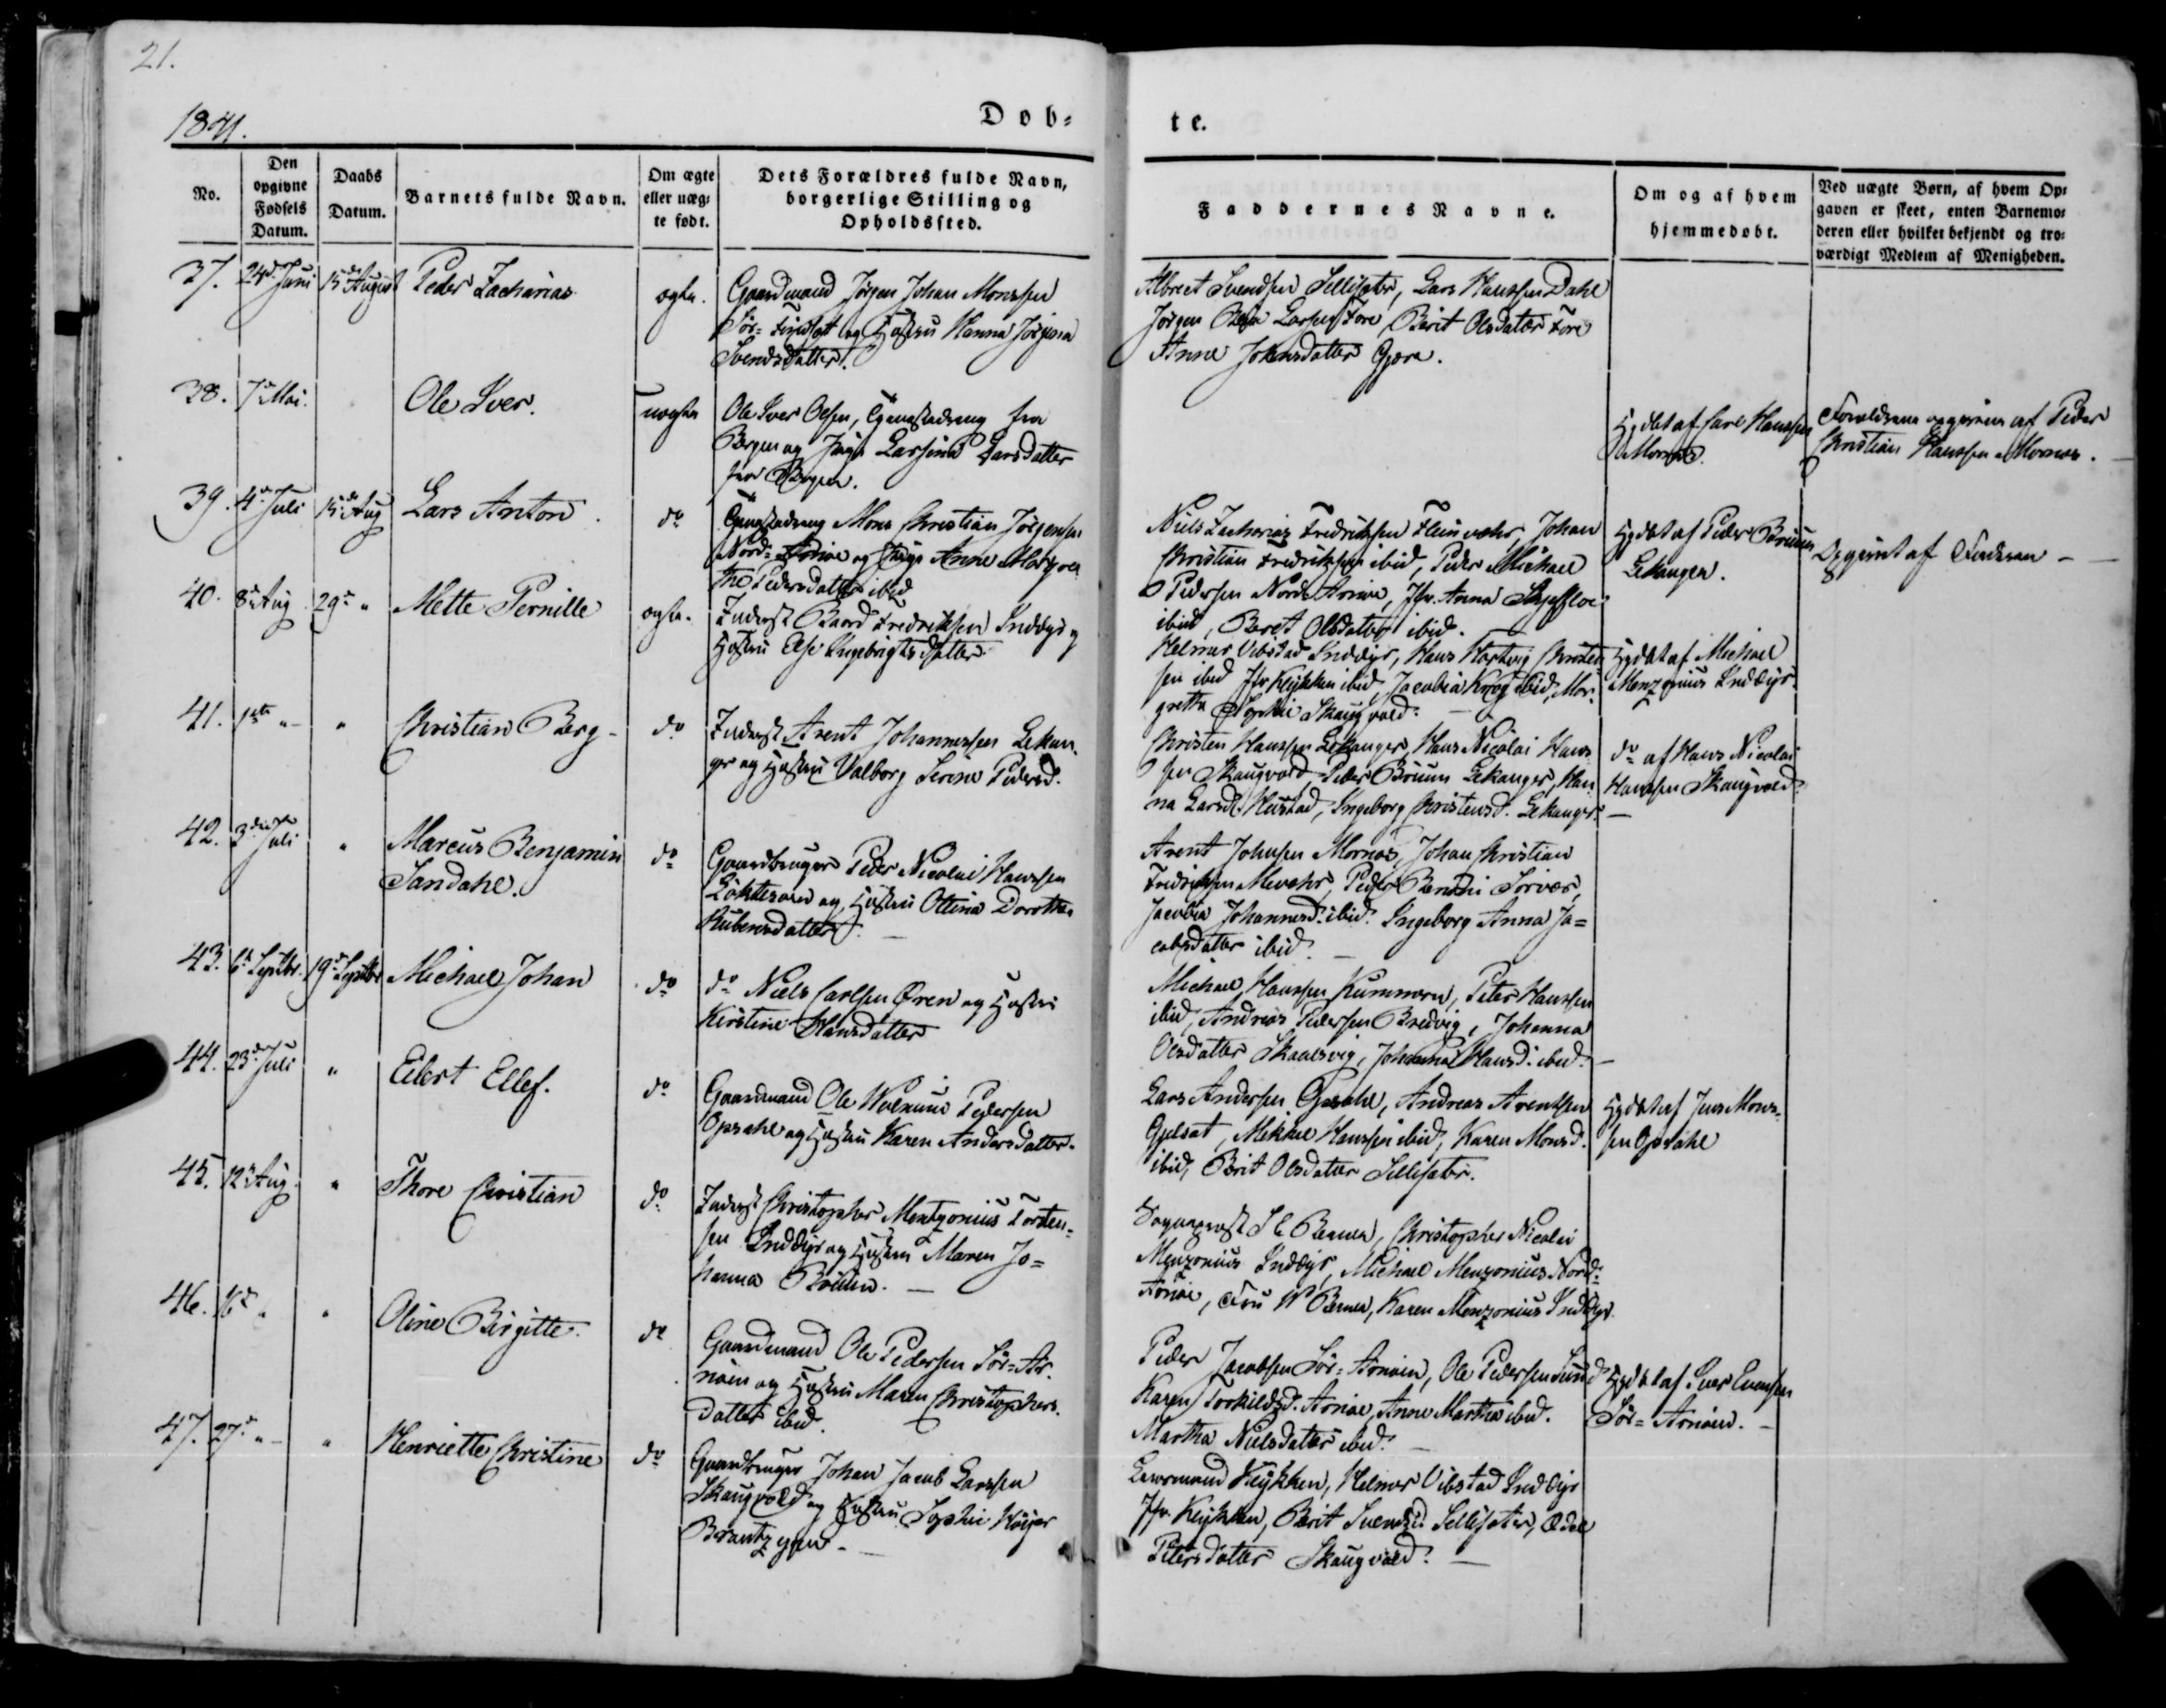 21.
1841.
Døb-
te.
No.
Den opgivne Fødsels Datum.
Daabs Datum.
Barnets fulde Navn.
Om ægte eller uægte født.
Dets Forældres fulde Navn, borgerlige Stilling og Opholdssted.
Faddernes Navne.
Om og af hvem hjemmedøbt.
Ved uægte Børn, af hvem Opgaven er skeet, enten Barnemoderen eller hvilket bekjendt og troværdigt Medlem af Menigheden.
37. 24d Juni 15de August Peder Zacharias ægte. Gaardmand Jørgen Johan Monssen
Sør- og Hustru Hanna
Svendsdatter.
Albrect Svendsen Sellisæter, Lars Hanssen Dahl
Jørgen Larssen Fore, Berit Olsdatter Fore
Anne Johnsdatter
38. 7de Mai. Ole Iver. uægte Ole Iver Olsen, fra
Bergen og Pige Larsine Larsdatter
fra
Hjdøbt af Carl Hanssen
Mornes.
Forældrene opgivne af Peder
Christian Hanssen Mornes.
39. 4de Juli 15de Aug Lars Anton do Mons Christian Jørgensen
Nord- Arnøe og Pige Anne
Pedersdatter ibid
Niels Zacharias Fredriksen Fleinvær, Johan
Christian Fredriksen ibid, Peder Michael
Pedersen Nord Arnøe, Jfr. Anna
ibid, Beret Olsdatter ibid.
Hjdøbt af Peder Bruun
Lekanger.
Opgivet af Faderen -
40. 8de Aug 29de " Mette Pernille ægte. Inderst Baard Fredriksen Inddyr og
Hustru Else Ingebrigtsdatter
Helmer Vibstad Inddyr, Hans Hartvig Christen
sen ibid Jfr Klykken ibid, Jacobia Krog ibid, Mar-
grethe Sophie Skaugvold.
Hjdøbt af Michael
Menzonius Inddyr.
41. 1ste " " Christian Berg - do Inderst Arent Johannessen Lekan-
ger og Hustru Valborg Serine Pedersd.
Christen Hanssen Lekanger, Hans Nicolai Hans
sen Skaugvold Peder Bruun Lekanger, Han-
na Larsd. Hustad, Ingeborg Christensd. Lekanger.
do af Hans Nicolai
Hanssen Skaugvold
42. 3die Juli " Marcus Benjamin
Sandahl.
do Gaardbruger Peder Nicolai Hanssen
og Hustru Ottina Dorothea
Rubensdatter.
Arent Johnsen Mornes, Johan Christian
Fredriksen Peder Sørvær,
Jacobia Johannesd. ibid. Ingeborg Anna Ja=
cobsdatter ibid.
43. 6te Septbr. 19de Septbr Michael Johan do do Niels Carlsen Øren og Hustru
Kirstine Hansdatter
Michael Hanssen Peter Hanssen
ibid, Andreas Pedersen Bredvig, Johanna
Olsdatter Skaalsvig, Johanna Hansd. ibid.
44. 23de Juli " Eilert Ellef. do Gaardmand Ole Pedersen
Opsahl og Hustru Karen Andersdatter.
Lars Andersen Opsahl, Andreas Arentsen
Mikkel Hanssen ibid, Karen Monsd.
ibid, Brit Olsdatter Sellisæter.
Hjdøbt af Jens Mons-
sen Opsahl
45. 12te Aug. " Thore Christian do Inderst Christopher Mentzonius Torsten-
sen Inddyr og Hustru Maren Jo=
hanna
Sognepræst Berner, Christopher Nicolai
Menzonius Inddyr, Michael Menzonius Nord-
Arnøe, Fru Berner, Karen Menzonius Inddyr.
46. 16de " " Oline Birgitte. do Gaardmand Ole Pedersen Sør=Ar-
nøen og Hustru Maren Christophers-
datter ibid.
Peder Jacobsen Sør=Arnøen, Ole Pedersen Sund
Karen Torkildsd. Arnøe, Anne Martha ibid.
Martha Nielsdatter ibid.
Hjdøbt af Iver Evensen
Sør=Arnøen.
47. 27de " " Henriette Christine do Gaardbruger Johan Jacob Larssen
Skaugvold og Hustru Sophie

Lensmand Klykken, Helmer Vibstad Inddyr
Jfr. Klykken, Berit Svendsd. Sellisæter,
Petersdatter Skaugvold.